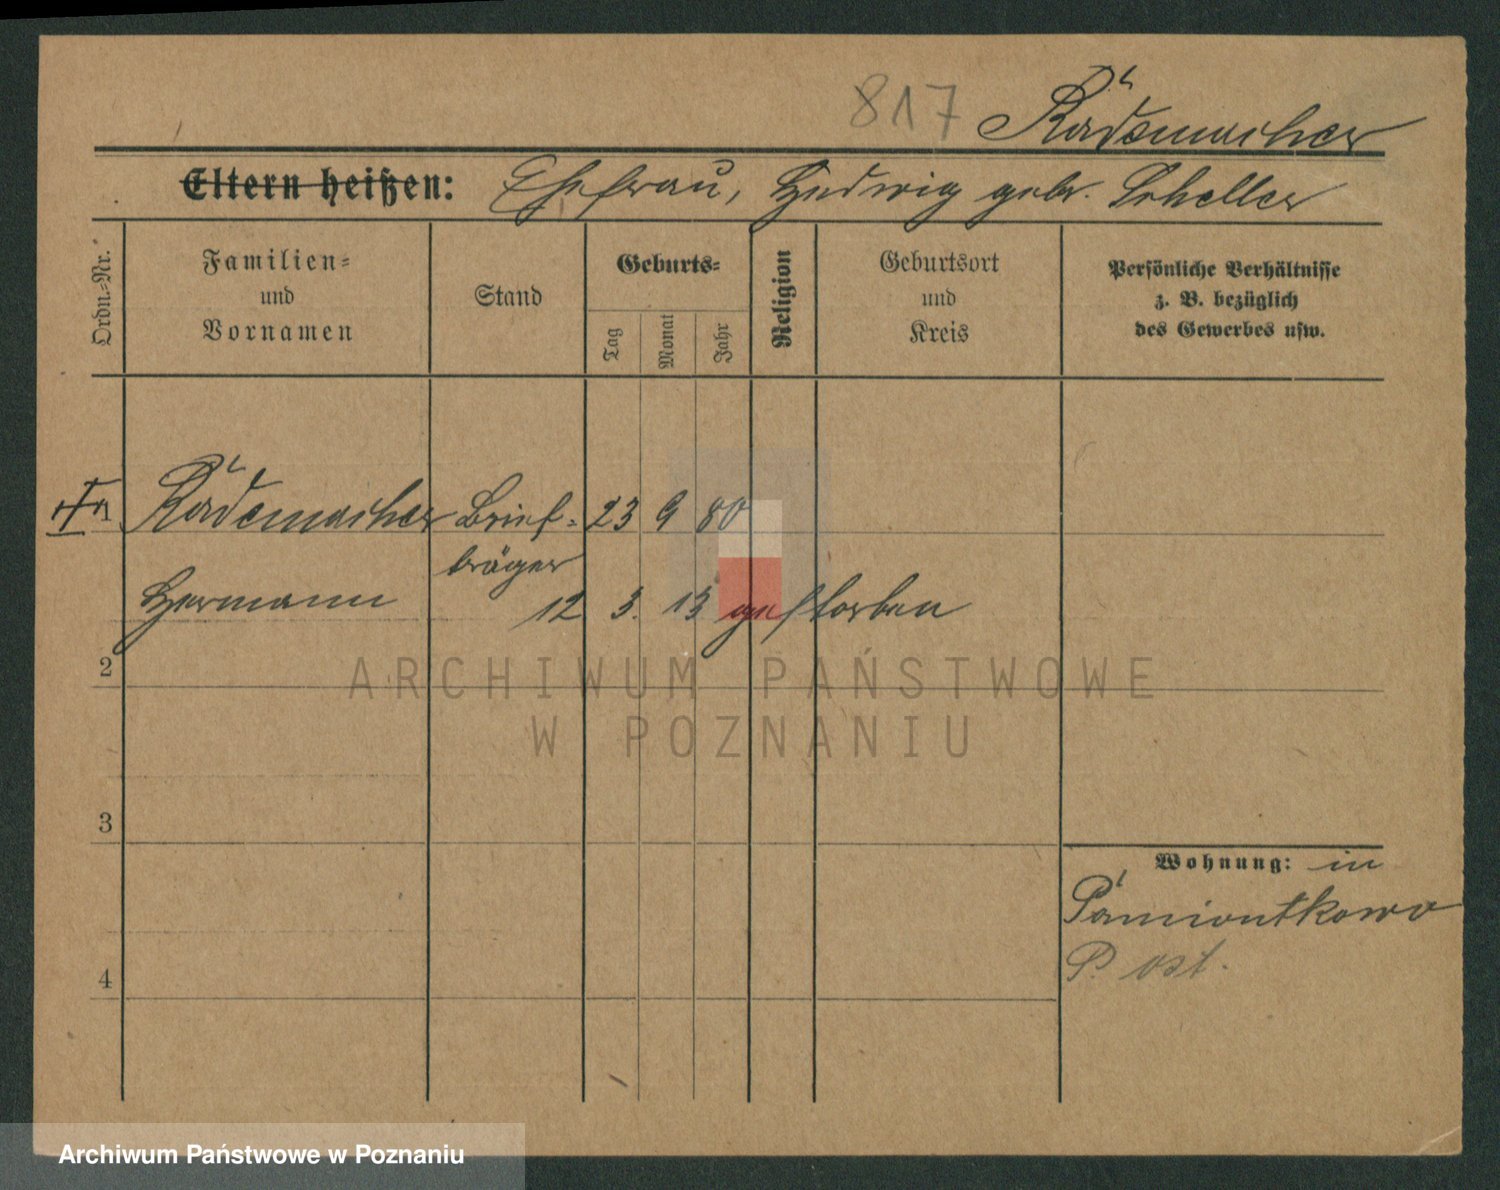 817 Rademacher
Eltern heißen: Ehefrau, Hedwig gebr. Scheller
Ordn.-Nr.
Familien-
und
Vornamen
Stand
Geburts-
Tag
Monat
Jahr
Religion
Geburtsort
und
Kreis
Persönliche Verhältnisse
z. B. bezüglich
des Gewerbes usw.
1 Rademacher Brief- 23 9 80
träger
Hermann 12 3. 13 gestorben
2
ARCHIWUM PAŃSTWOWE
W POZNANIU
3
Wohnung: in
Pamiontkowo
P. ost.
4
Archiwum Państwowe w Poznaniu